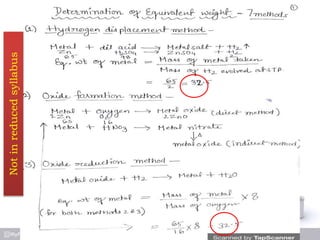 Determination of Equivalent weight - 7 methods
①
(1) Hydrogen displacement method -
Metal + dil acid → Metal salt + H2 ↑
Zn H2SO4 ZnSO4 + H2 ↑
65 98
Eq. wt of metal = Mass of metal taken
Mass of H2 evolved at STP
= 65/2 = 32.5
2) Oxide formation method -
Metal + Oxygen → Metal oxide (direct method)
2Zn O2 2ZnO
65 16
Metal + HNO3 → Metal nitrate
↓Δ
metal oxide (indirect method)
3) Oxide reduction method -
Metal oxide + H2 → Metal + H2O
eq wt of metal = Mass of metal × 8
(for both methods 2 & 3) Mass of oxygen
= 65/16 × 8 32.5
Not in reduced syllabus
Scanned by TapScanner